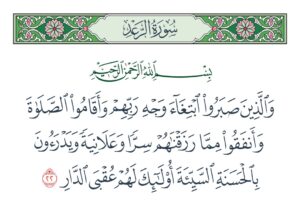 سُورَةُ الرَّعْدِ
بِسْمِ اللَّهِ الرَّحْمَٰنِ الرَّحِيمِ
وَالَّذِينَ صَبَرُوا۟ ابْتِغَآءَ وَجْهِ رَبِّهِمْ وَأَقَامُوا۟ الصَّلَوٰةَ
وَأَنفَقُوا۟ مِمَّا رَزَقْنَٰهُمْ سِرًّا وَعَلَانِيَةً وَيَدْرَءُونَ
بِالْحَسَنَةِ السَّيِّئَةَ أُو۟لَٰٓئِكَ لَهُمْ عُقْبَى الدَّارِ ٢٢